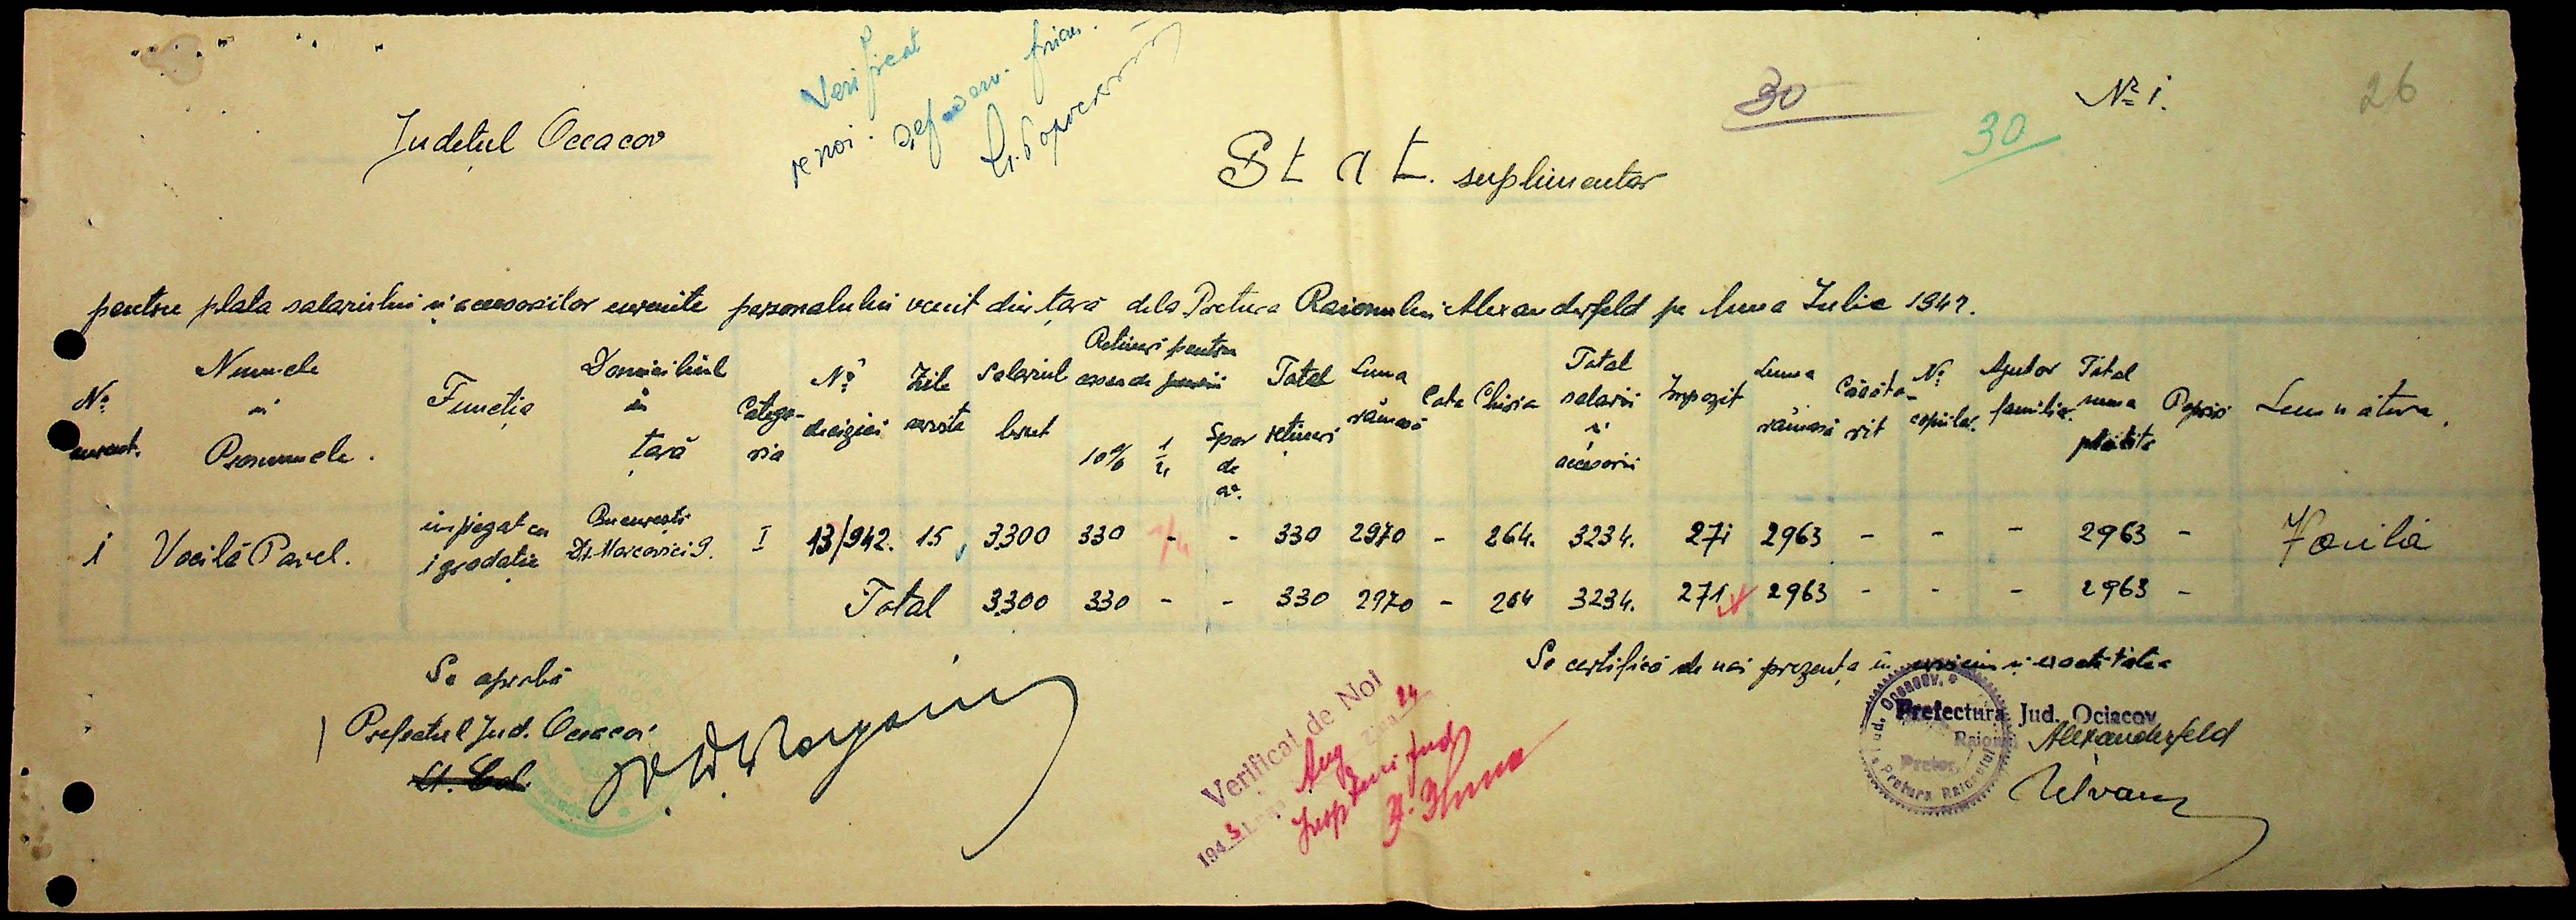 Verificat
de noi. Șef serv. finan.
26
30
Nº 1.
30
Județul Oceacov
Stat. suplimentar
pentru plata salariului și accesoriilor cuvenite personalului venit din țară dela Pretura Raionului Alexanderfeld pe luna Iulie 1942.
Nº curent. Numele și Pronumele. Funcția Domiciliul în țară Catego-ria Nº deciziei Zile servite Salariul brut Rețineri pentru casa de pensii 10% 1/4 Spor de av. Total rețineri Suma rămasă Cota Chiria Total salarii și accesorii Impozit Suma rămasă Căsăto-rit Nº copiilor. Ajutor familiar Total suma plătită Popriri Semnătura.
1 Vacilă Pavel. impiegat cu 1 gradație București Dr. Marcovici 9. I 13/942. 15 3300 330 - - 330 2970 - 264. 3234. 271 2963 - - - 2963 - Vacilă
Total 3300 330 - - 330 2970 - 264 3234. 271 2963 - - - 2963 -
Se certifică de noi prezența în serviciu și exactitatea
Se aprobă
Prefectul Jud. Oceacov
Lt. Col.
Verificat de Noi
194 3 Luna Aug Ziua 24
Prefectura Jud. Ociacov
Raionul Alexanderfeld
Pretor,
Jud. Oceacov.
Pretura Raionului